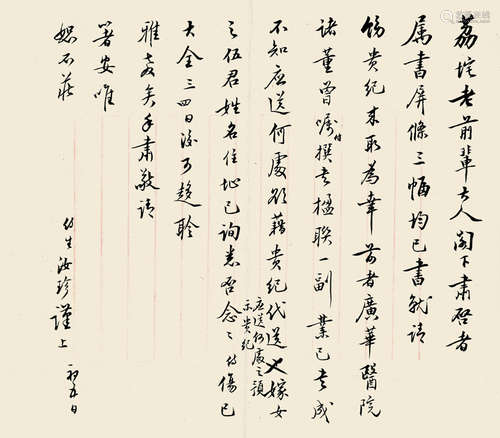 荔垞老前輩大人閣下肅啓者
属書屏條三幅均已書就請
飭貴紀来取為幸前者廣華醫院
諸董曾嘱侍撰書楹联一副業已書成
不知应送何處欲藉貴紀代送又嫁女
之伍君姓名住址已詢悉否念〻侍傷已
应送何處之預
示貴紀
大全三四日後可趍聆
雅教矣手肅敬請
箸安唯
恕不莊
侍生汝珍謹上 初五日